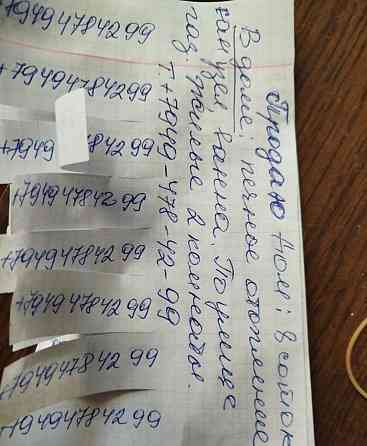 Продаю дом: 8 соток
В доме: печное отопление
санузел, ванна. По улице
газ. Жилые 2 комнаты.
Т. +7949-478-42-99
+79494784299
+79494784299
+7949 784299
+79494784299
+79494784299
+79494784299
+79494784299
+79494784299